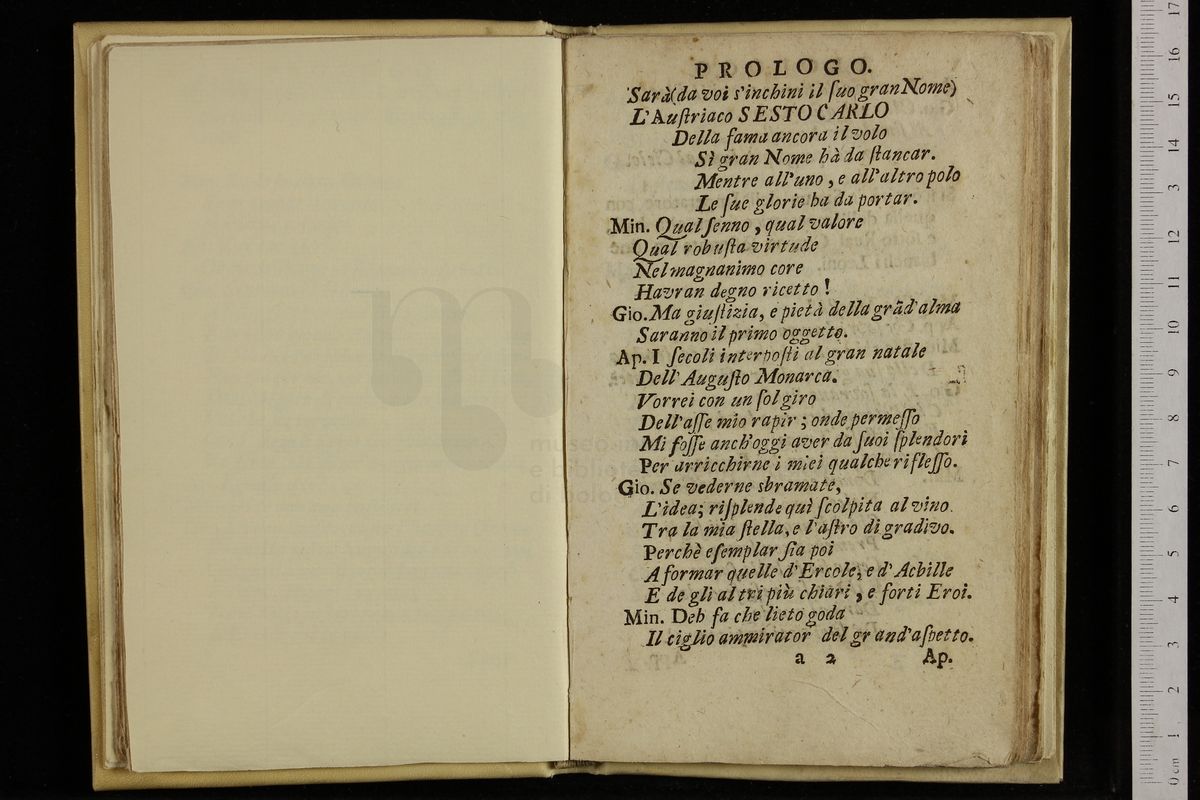 PROLOGO.
Sarà (da voi s'inchini il ſuo gran Nome)
L'Auſtriaco SESTO CARLO
Della fama ancora il volo
Sì gran Nome hà da ſtancar.
Mentre all'uno, e all'altro polo
Le ſue glorie ha da portar.
Min. Qual ſenno, qual valore
Qual robuſta virtude
Nel magnanimo core
Havran degno ricetto!
Gio. Ma giuſtizia, e pietà della grãd'alma
Saranno il primo oggetto.
Ap. I ſecoli interpoſti al gran natale
Dell'Auguſto Monarca.
Vorrei con un ſol giro
Dell'aſſe mio rapir; onde permeſſo
Mi foſſe anch'oggi aver da ſuoi ſplendori
Per arricchirne i miei qualche rifleſſo.
Gio. Se vederne sbramate,
L'idea; riſplende quì ſcolpita al vino.
Tra la mia ſtella, e l'aſtro di gradivo.
Perchè eſemplar ſia poi
A formar quelle d'Ercole, e d'Achille
E de gli altri più chiari, e forti Eroi.
Min. Deh fa che lieto goda
Il ciglio ammirator del grand'aſpetto.
a 2 Ap.
museo in
e bibliote
di bolog
0 cm 1 2 3 4 5 6 7 8 9 10 11 12 13 14 15 16 17